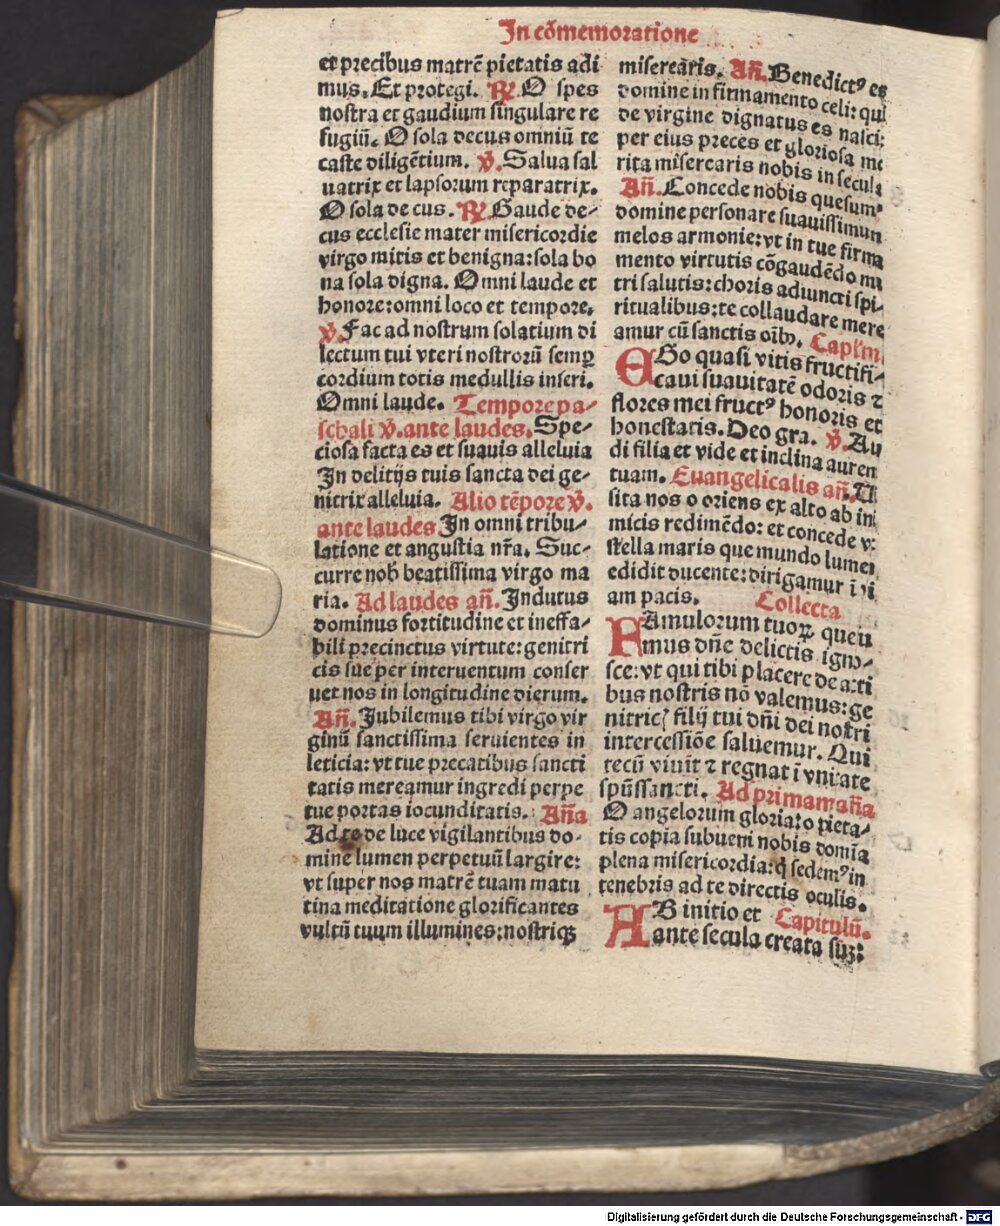 In cōmemoratione
et precibus matrē pietatis adi
mus. Et protegi. ℟. O spes
nostra et gaudium singulare re
fugiū. O sola decus omniū te
caste diligētium. ℣. Salua sal
uatrix et lapsorum reparatrix.
O sola de cus. ℟. Gaude de⸗
cus ecclesie mater misericordie
virgo mitis et benigna: sola bo
na sola digna. Omni laude et
honore: omni loco et tempore.
℣. Fac ad nostrum solatium di
lectum tui vteri nostrorū semꝑ
cordium totis medullis inseri.
Omni laude. Tempore pa⸗
schali ℣. ante laudes. Spe⸗
ciosa facta es et suauis alleluia
In delitijs tuis sancta dei ge⸗
nitrix alleluia. Alio tēpore ℣.
ante laudes In omni tribu⸗
latione et angustia nr̄a. Suc⸗
curre nob̄ beatissima virgo ma
ria. Ad laudes añ. Indutus
dominus fortitudine et ineffa⸗
bili precinctus virtute: genitri
cis sue per interuentum conser
uet nos in longitudine dierum.
Añ. Jubilemus tibi virgo vir
ginū sanctissima seruientes in
leticia: vt tue precatibus sancti
tatis mereamur ingredi perpe
tue portas iocunditatis. Aña
Ad te de luce vigilantibus do⸗
mine lumen perpetuū largire:
vt super nos matrē tuam matu
tina meditatione glorificantes
vultū tuum illumines: nostrisqꝫ
miserearis. Añ. Benedictꝰ es
domine in firmamento celi: qui
de virgine dignatus es nasci:
per eius preces et gloriosa me
rita miserearis nobis in secula
Añ. Concede nobis quesumꝰ
domine personare suauissimum
melos armonie: vt in tue firma
mento virtutis cōgaudēdo ma
tri salutis: choris adiuncti spi⸗
ritualibus: te collaudare mere
amur cū sanctis oībꝰ. Capl'm
EGo quasi vitis fructifi⸗
caui suauitatē odoris ⁊
flores mei fructꝰ honoris et
honestatis. Deo gra. ℣. Au
di filia et vide et inclina aurem
tuam. Euangelicalis añ. Vi
sita nos o oriens ex alto ab ini
micis redimēdo: et concede vt
stella maris que mundo lumen
edidit ducente: dirigamur ī vi
am pacis. Collecta
FAmulorum tuoꝝ quesu
mus dn̄e delictis igno⸗
sce: vt qui tibi placere de acti
bus nostris nō valemus: ge
nitricꝭ filij tui dn̄i dei nostri
intercessiōe saluemur. Qui
tecū viuit ⁊ regnat ī vnitate
spūssancti. Ad primam aña
O angelorum gloria: o pieta⸗
tis copia subueni nobis domīa
plena misericordia: q̄ sedemꝰ in
tenebris ad te directis oculis.
AB initio et Capitulū.
ante secula creata suꝫ:
Digitalisierung gefördert durch die Deutsche Forschungsgemeinschaft - DFG